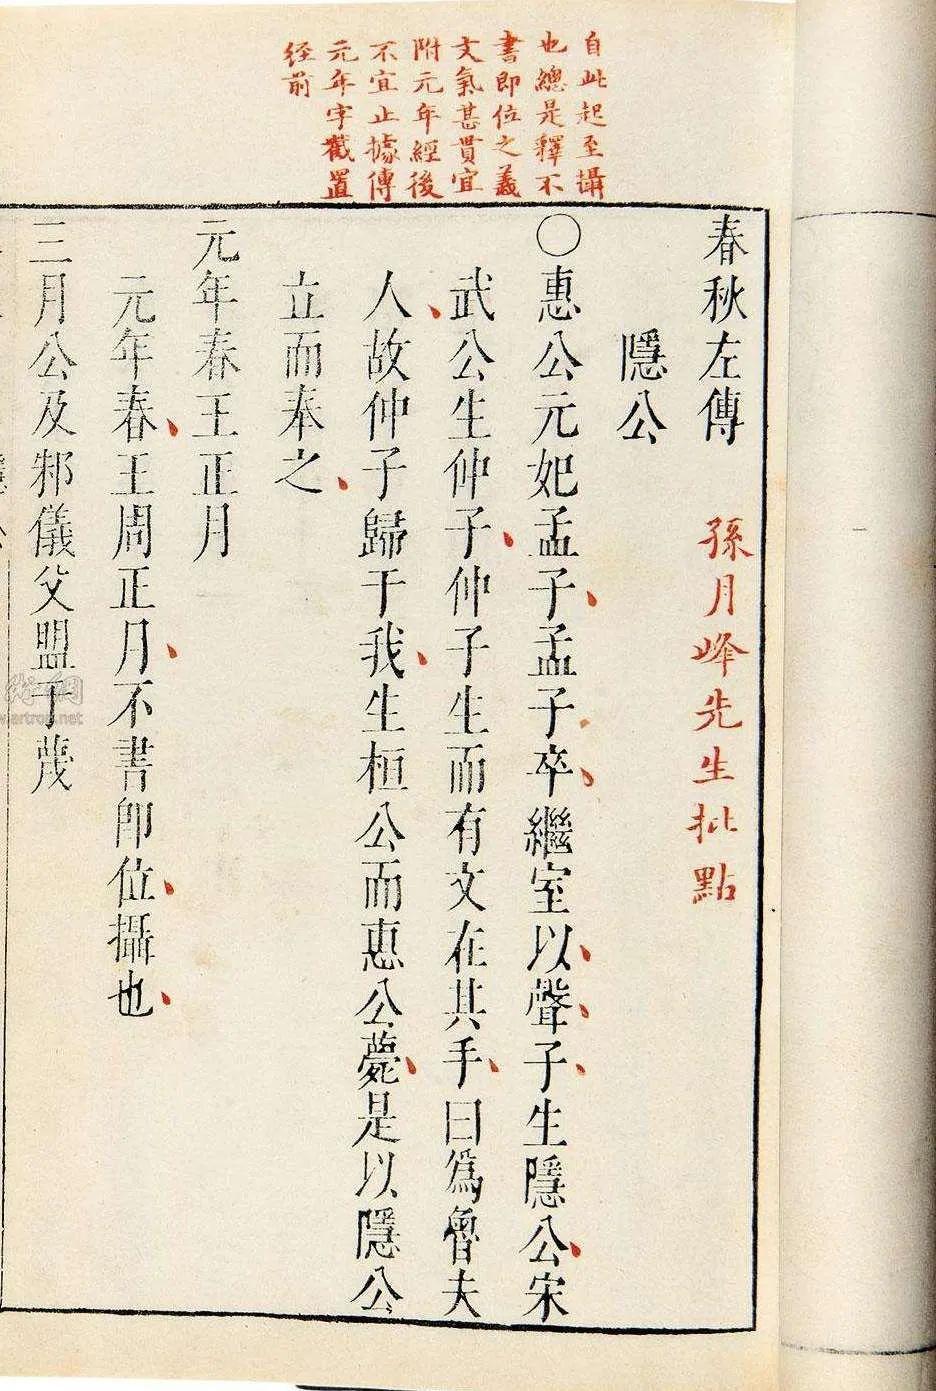 自此起至攝
也總是釋不
書即位之義
文氣甚貫宜
附元年經後
不宜止據傳
元年字截置
经前
春秋左傳 孫月峰先生批點
隱公
〇惠公元妃孟子孟子卒繼室以聲子生隱公宋
武公生仲子仲子生而有文在其手曰爲魯夫
人故仲子歸于我生桓公而惠公薨是以隱公
立而奉之
元年春王正月
元年春王周正月不書即位攝也
三月公及邾儀父盟于蔑